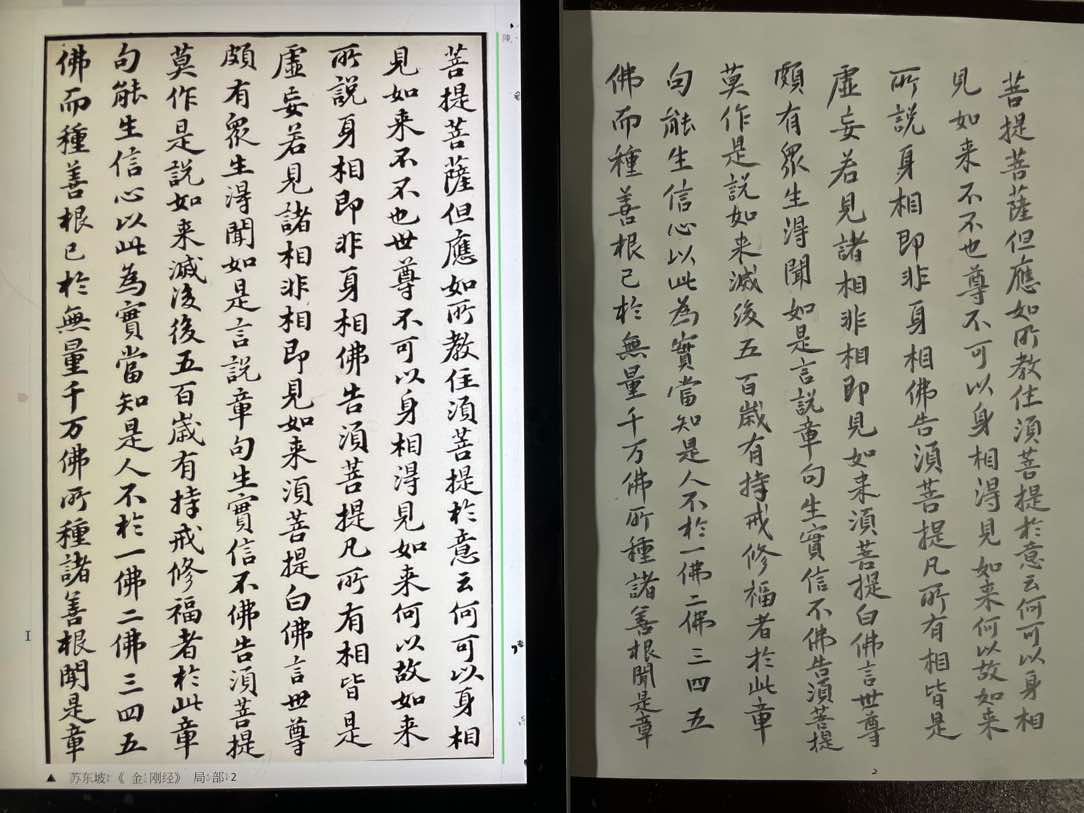 菩提菩薩但應如所教住須菩提於意云何可以身相
見如来不不也世尊不可以身相得見如来何以故如来
所說身相即非身相佛告須菩提凡所有相皆是
虛妄若見諸相非相即見如来須菩提白佛言世尊
頗有眾生得聞如是言說章句生實信不佛告須菩提
莫作是說如来滅後後五百歲有持戒修福者於此章
句能生信心以此為實當知是人不於一佛二佛三四五
佛而種善根已於無量千万佛所種諸善根聞是章
▲ 苏东坡:《金刚经》局部2
菩提菩薩但應如所教住須菩提於意云何可以身相
見如来不不也尊不可以身相得見如来何以故如来
所說身相即非身相佛告須菩提凡所有相皆是
虛妄若見諸相非相即見如来須菩提白佛言世尊
頗有眾生得聞如是言說章句生實信不佛告須菩提
莫作是說如来滅後五百歲有持戒修福者於此章
句能生信心以此為實當知是人不於一佛二佛三四五
佛而種善根已於無量千万佛所種諸善根聞是章
2